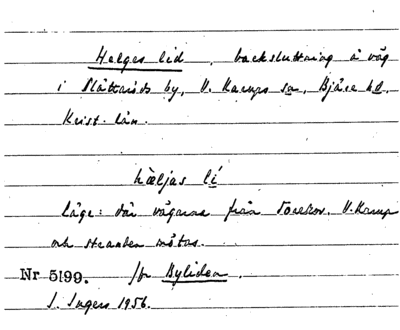 Helges lid, backsluttning å väg
i Slättaröds by, V. Karups sn, Bjäre hd,
Krist. län.
hæljas lí
läge: där vägarna från Torekov, V. Karup
och stranden mötas.
Nr 5199. /fr Byliden.
I. Ingers 1956.